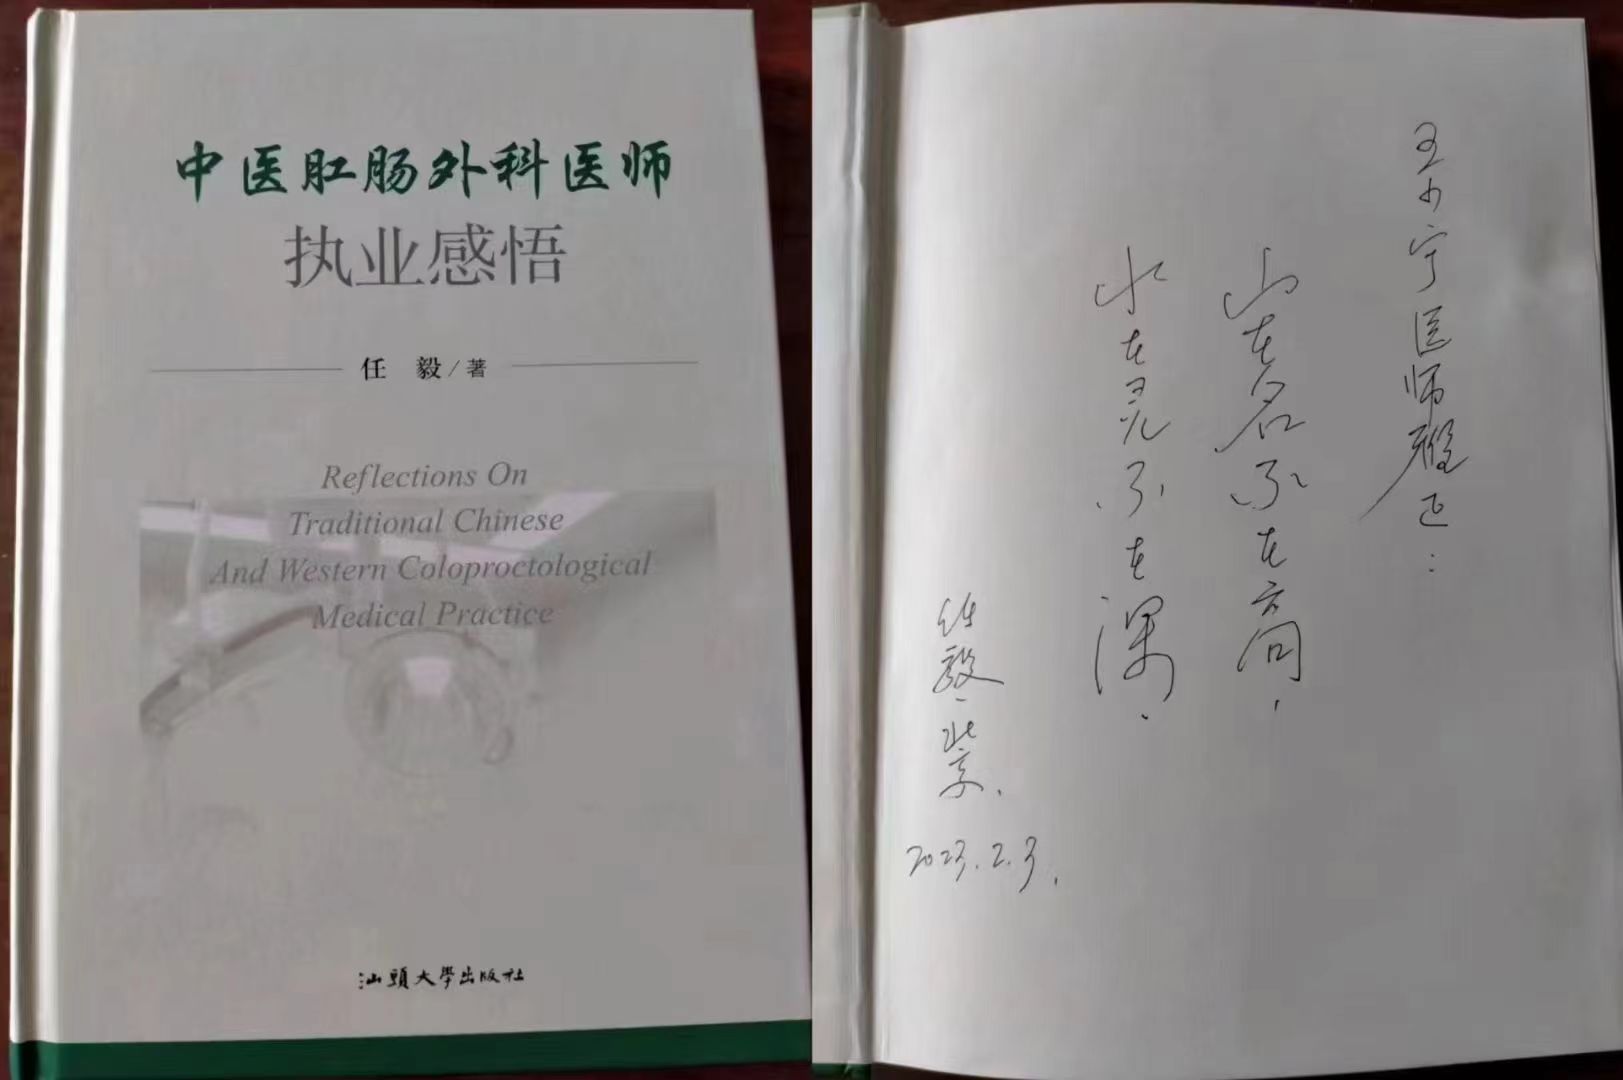 中医肛肠外科医师
执业感悟
任 毅/著
Reflections On
Traditional Chinese
And Western Coloproctological
Medical Practice
汕頭大學出版社
王小宁医师雅正：
山在名不在高，
水在灵不在深．
任毅、北京．
2023.2.3．